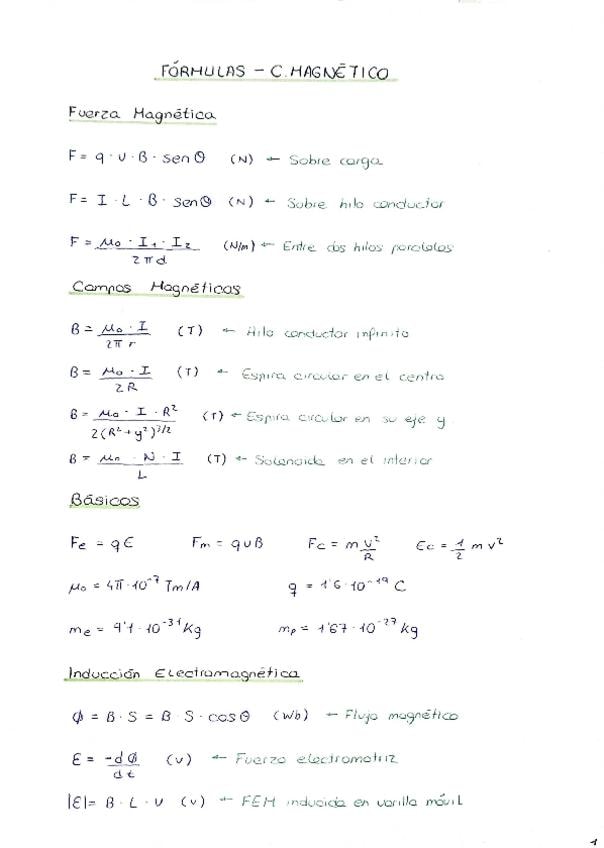 FÓRMULAS - C. MAGNÉTICO
Fuerza Magnética
F = q · v · B · sen θ (N) ← Sobre carga
F = I · L · B · sen θ (N) ← Sobre hilo conductor
F = μ₀ · I₁ · I₂ / 2πd (N/m) ← Entre dos hilos paralelos
Campos Magnéticos
B = μ₀ · I / 2π r (T) ← Hilo conductor infinito
B = μ₀ · I / 2R (T) ← Espira circular en el centro
B = μ₀ · I · R² / 2(R² + y²)^3/2 (T) ← Espira circular en su eje y
B = μ₀ · N · I / L (T) ← Solenoide en el interior
Básicos
Fe = qE Fm = qvB Fc = m v²/R Ec = 1/2 m v²
μ₀ = 4π·10⁻⁷ Tm/A q = 1'6·10⁻¹⁹ C
me = 9'1·10⁻³¹ Kg mp = 1'67·10⁻²⁷ Kg
Inducción Electromagnética
ϕ = B · S = B · S · cos θ (Wb) ← Flujo magnético
ε = -dϕ / dt (V) ← Fuerza electromotriz
|ε| = B · L · v (V) ← FEM inducida en varilla móvil
1